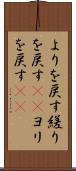 よりを戻す縒り
を戻す ヨリ
を戻す